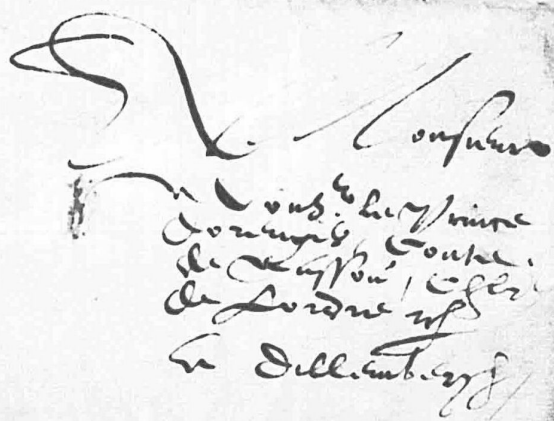 A Monsieur
Mons.r le Prince
dorenges, Conte
de Nassou, Chlr
de Lordre etc
A Dillemberch